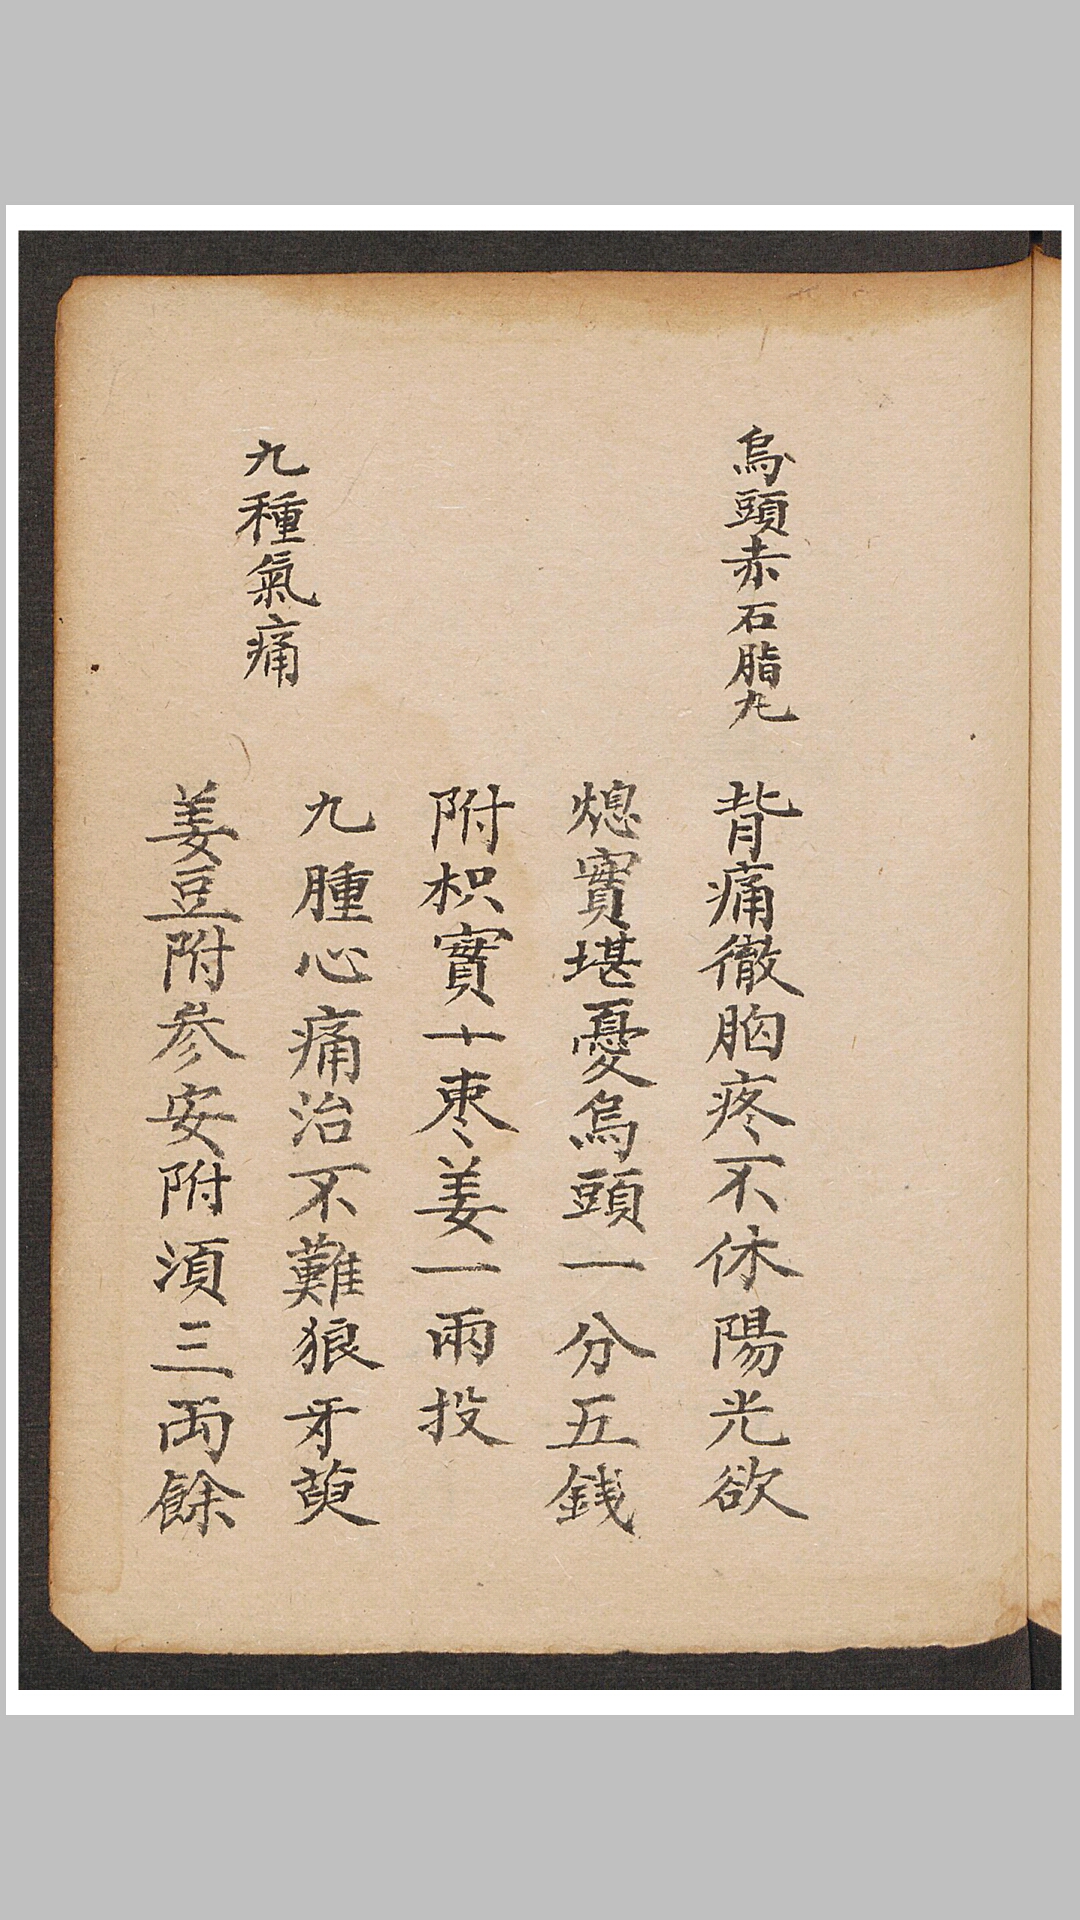 烏頭赤石脂丸
背痛徹胸疼不休陽光欲
熄實堪憂烏頭一分五錢
附枳實十枣姜一兩投
九種氣痛
九腫心痛治不難狼牙萸
姜豆附參安附湏三両餘